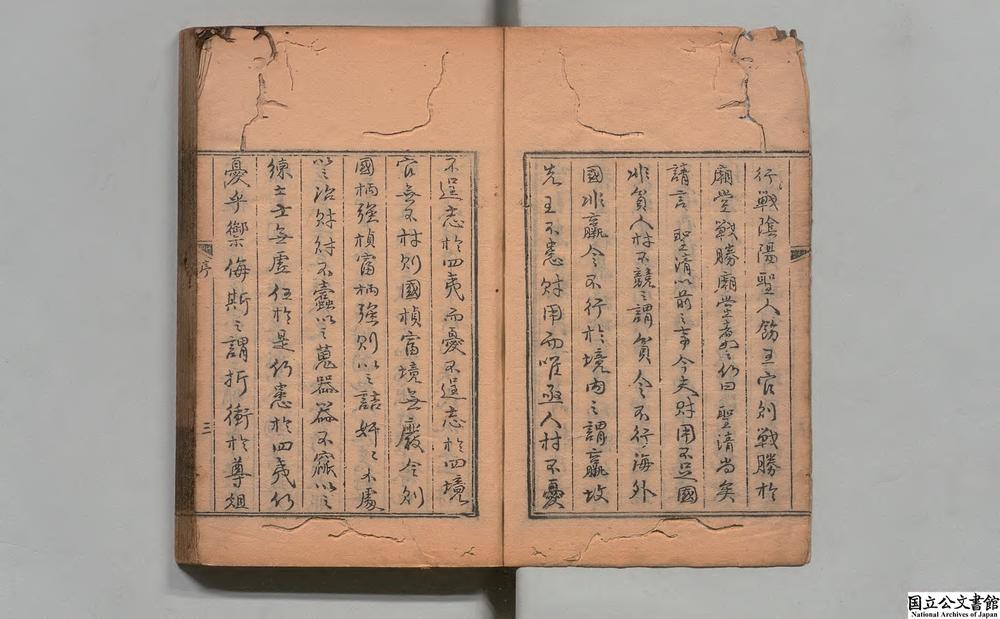 行戰陰陽聖人飭五官則戰勝於
廟堂戰勝廟堂者如之何曰聖清尚矣
請言聖清以前之事今夫財用不足國
非貧人材不競之謂貧令不行海外
國非羸令不行於境內之謂羸故
先王不患財用而唯亟人材不憂
不逞志於四夷而憂不逞志於四境
官無不材則國楨富境無廢令則
國柄強楨富柄強則以之詰奸〻不處
以之治財財不蠹以之蒐器器不窳以之
練士士無虛伍於是何患於四夷何
憂乎禦侮斯之謂折衝於尊俎
序
三
国立公文書館
National Archives of Japan